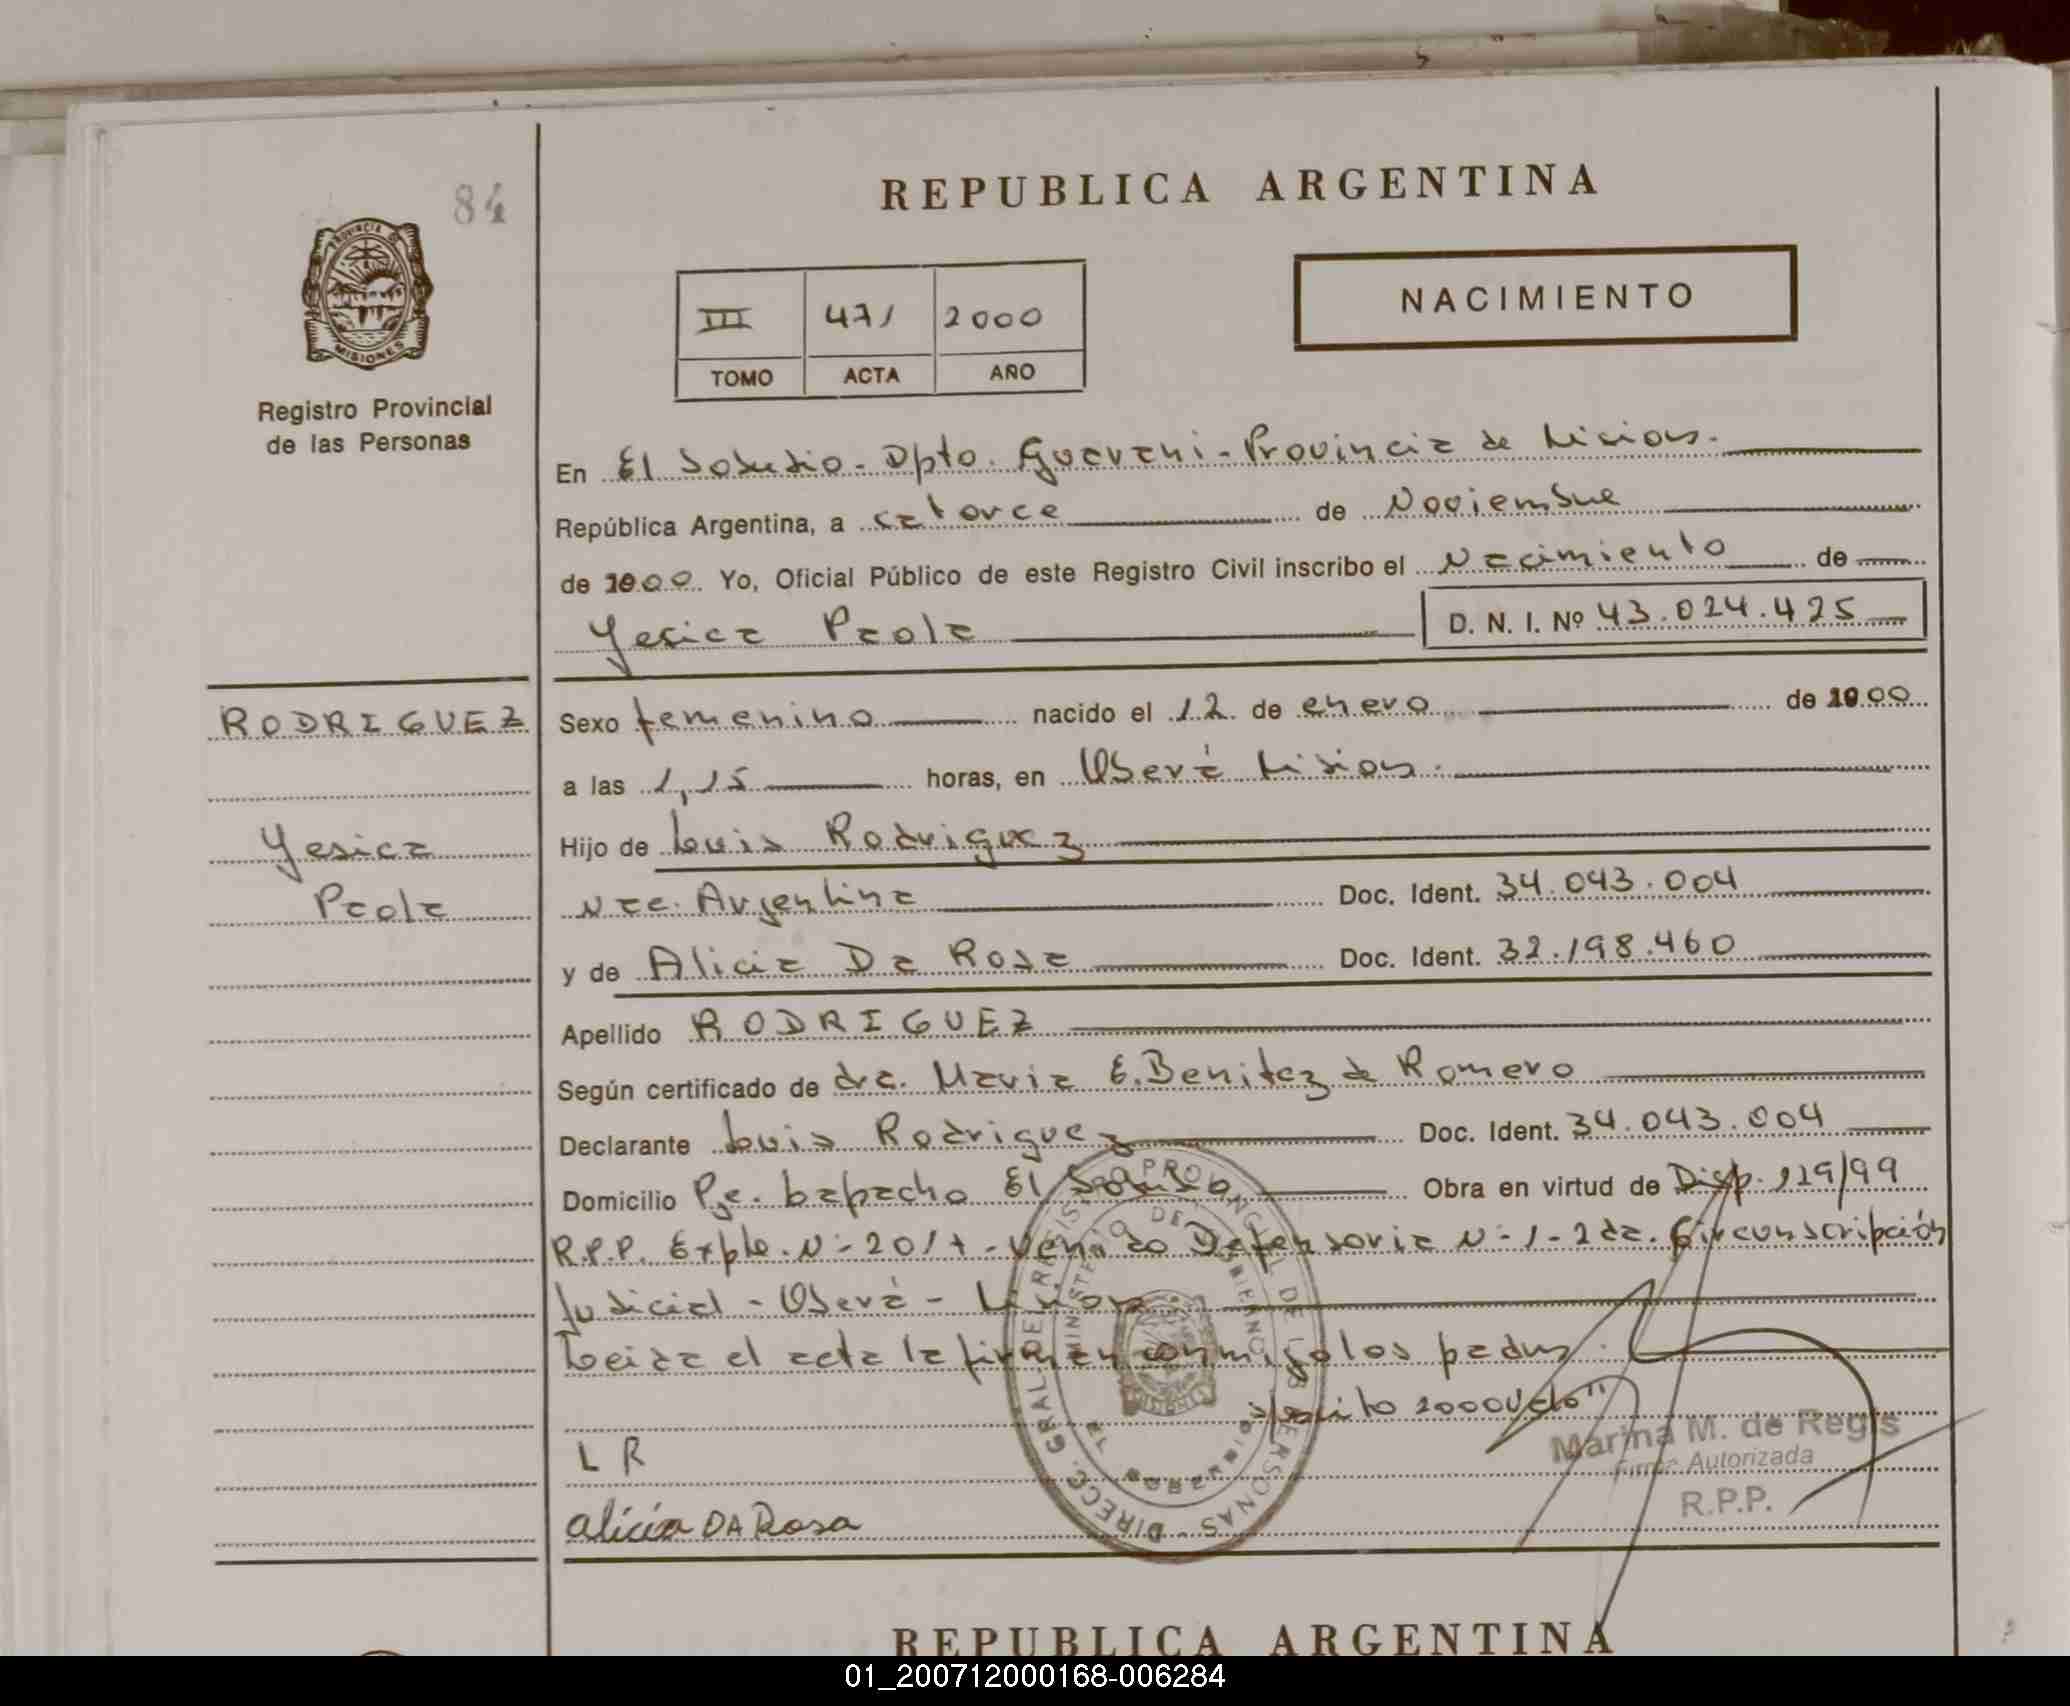 84
REPUBLICA ARGENTINA
PROVINCIA DE
MISIONES
Registro Provincial
de las Personas
III 471 2000
TOMO ACTA AÑO
NACIMIENTO
En El Soberbio - Dpto. Guarani - Provincia de Misiones.
República Argentina, a catorce de Noviembre
de 2000 Yo, Oficial Público de este Registro Civil inscribo el Nacimiento de
Yesica Paola D. N. I. Nº 43.024.425
RODRIGUEZ
Yesica
Paola
Sexo femenino nacido el 12 de enero de 2000
a las 1,15 horas, en Oberá Misiones.
Hijo de Luis Rodriguez
Nac. Argentina Doc. Ident. 34.043.004
y de Alicia Da Rosa Doc. Ident. 32.198.460
Apellido RODRIGUEZ
Según certificado de dra. Maria E. Benitez de Romero
Declarante Luis Rodriguez Doc. Ident. 34.043.004
Domicilio Pje. Lapacho El Soberbio Obra en virtud de Disp. 129/99
R.P.P. Expte. Nº 201 - Defensoria Nº 1 - 2da. Circunscripción
Judicial - Oberá - Misiones
Leida el acta la firman conmigo los padres.
2000 Vale"
L R
alicia DA Rosa
DIRECC. GRAL. DE REGIST. PROVINCIAL DE LAS PERSONAS
MINISTERIO DE GOBIERNO
EL SOBERBIO
MISIONES
Marina M. de Regis
Firma Autorizada
R.P.P.
REPUBLICA ARGENTINA
01_200712000168-006284